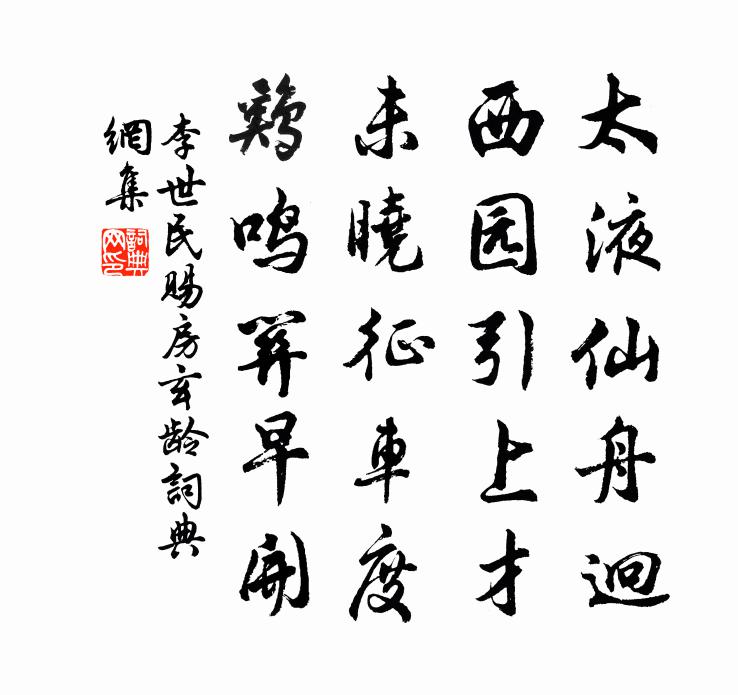 太液仙舟迥
西园引上才
未曉征車度
鷄鳴關早開
李世民賜房玄龄詞典
網集
詞典網印